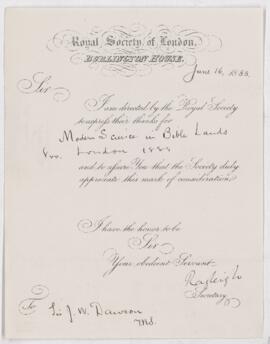 Royal Society of London,
BURLINGTON HOUSE.
June 16, 1888.
Sir
I am directed by the Royal Society
to express their thanks for
Modern Science in Bible Lands
8vo. London 1888
and to assure You that the Society duly
appreciate this mark of consideration.
I have the honor to be
Sir
Your obedient Servant
Rayleigh
Secretary
To Sir J. W. Dawson